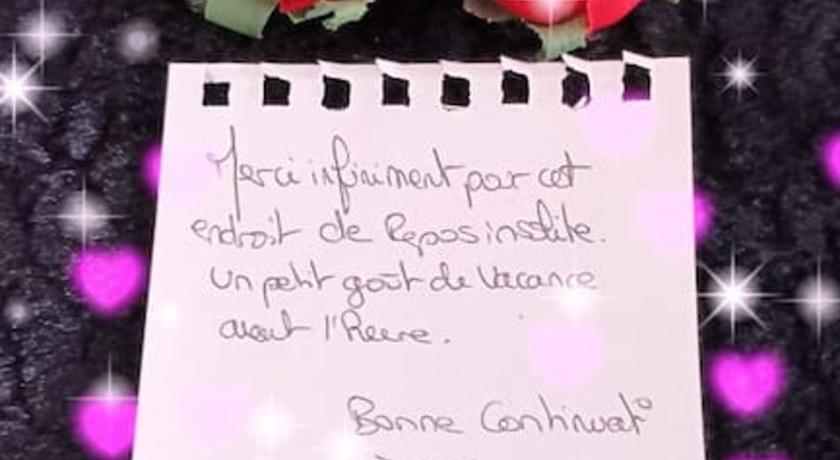 Merci infiniment pour cet
endroit de Repos insolite.
Un petit goût de Vacance
avant l'Heure.
Bonne Continuat°